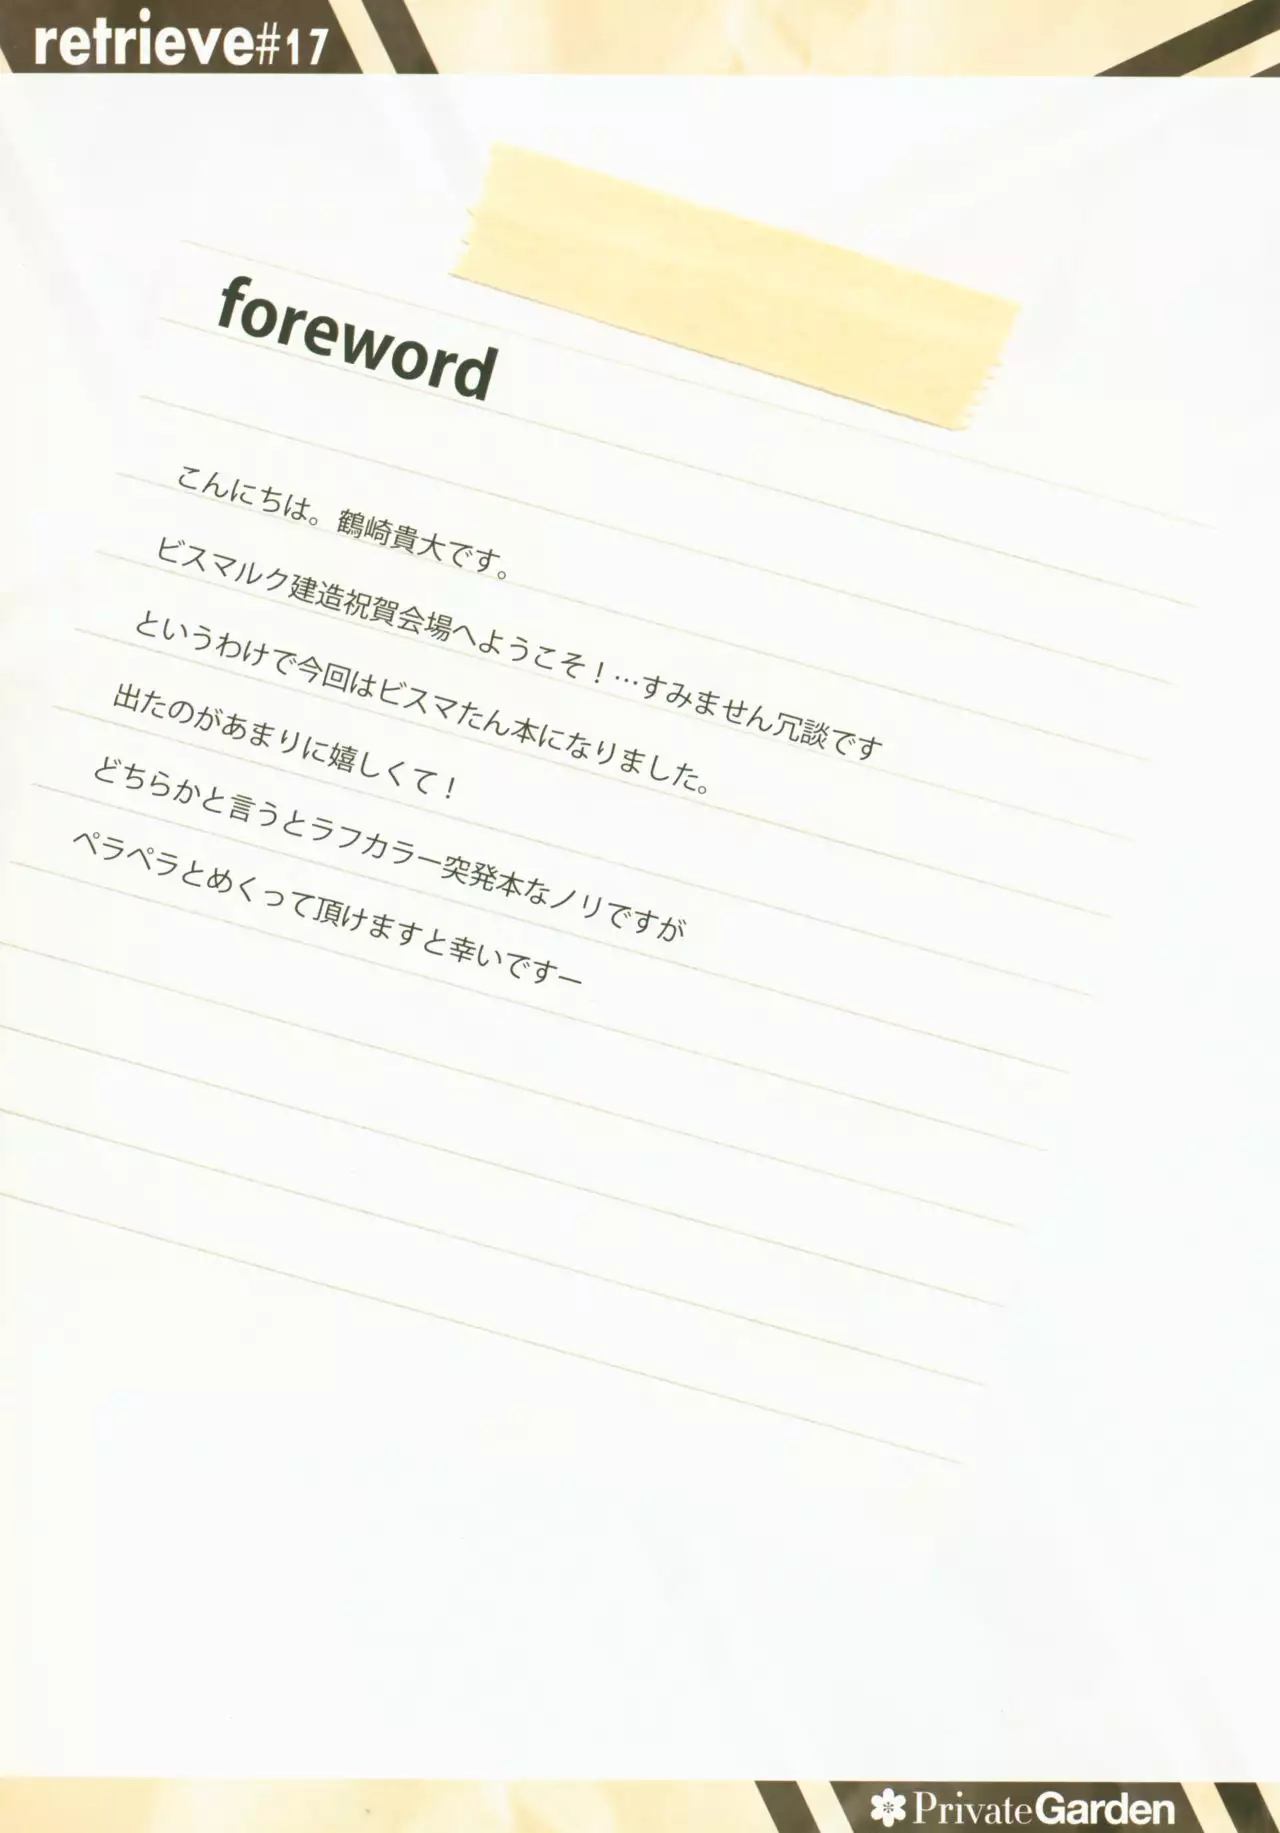 retrieve#17
foreword
こんにちは。鶴崎貴大です。
ビスマルク建造祝賀会場へようこそ！…すみません冗談です
というわけで今回はビスマたん本になりました。
出たのがあまりに嬉しくて！
どちらかと言うとラフカラー突発本なノリですが
ペラペラとめくって頂けますと幸いですー
PrivateGarden